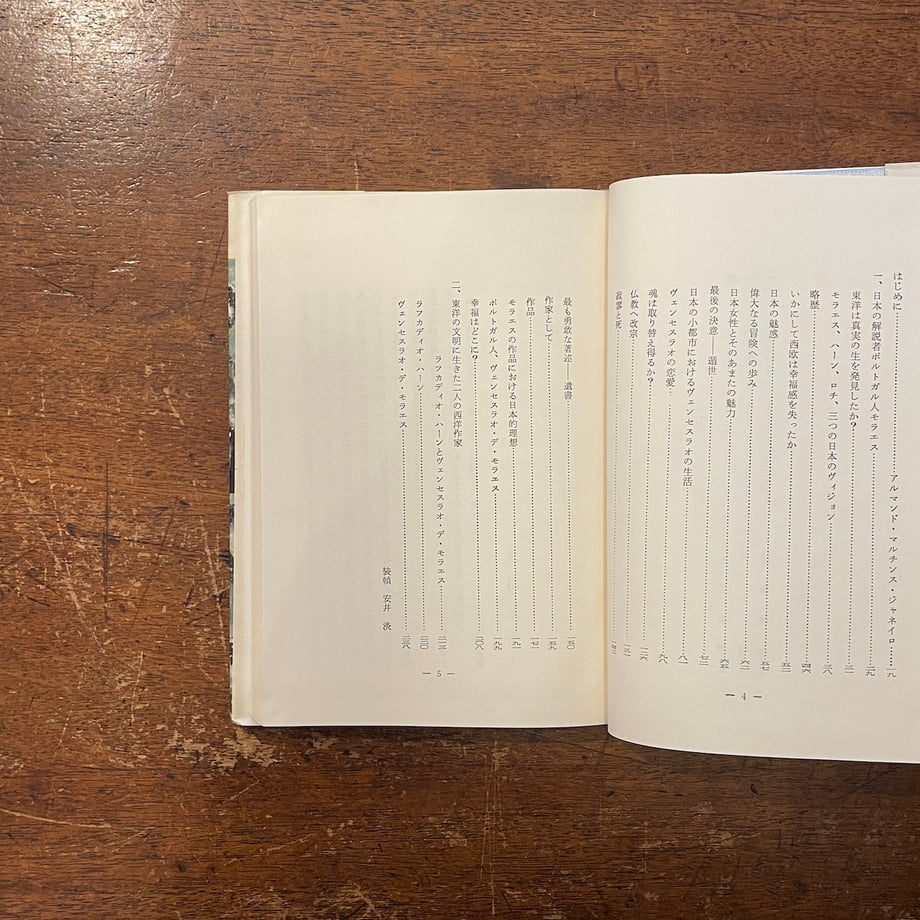 はじめに……アルマンド・マルチンス・ジャネイロ……一九
一、日本の解説者ポルトガル人モラエス……二九
東洋は真実の生を発見したか？……三一
モラエス、ハーン、ロチ、三つの日本のヴィジョン……三八
略歴……四六
いかにして西欧は幸福感を失ったか……五二
日本の魅惑……五七
偉大なる冒険への歩み……六二
日本女性とそのあまたの魅力……六五
最後の決意——遁世……七二
日本の小都市におけるヴェンセスラオの生活……八一
ヴェンセスラオの恋愛……九八
魂は取り替え得るか？……一二六
仏教へ改宗……一三一
寂寥と死……一四二
— 4 —
最も勇敢な著述——遺書……一五〇
作家として……一五九
作品……一七一
モラエスの作品における日本的理想……一九一
ポルトガル人、ヴェンセスラオ・デ・モラエス……一九九
幸福はどこに？……二〇八
二、東洋の文明に生きた二人の西洋作家
ラフカディオ・ハーンとヴェンセスラオ・デ・モラエス……二一三
ラフカディオ・ハーン……二二〇
ヴェンセスラオ・デ・モラエス……二三八
装幀 安井 淡
— 5 —